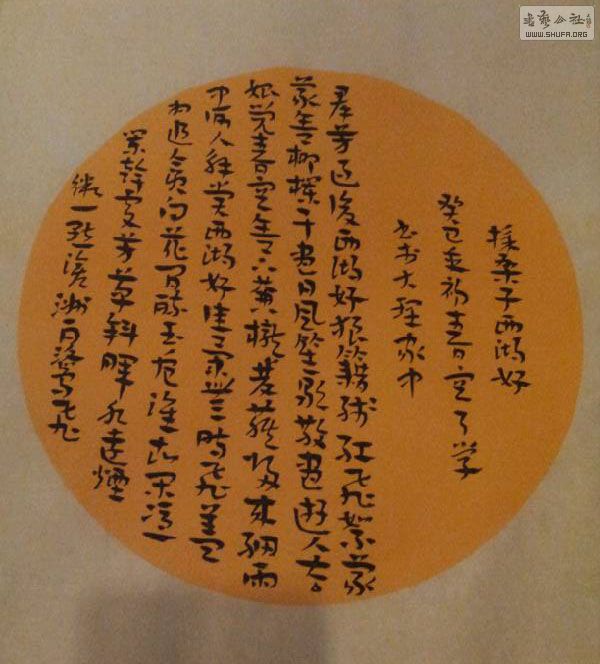 採桑子西湖好
癸巳年初春日空了学
书於大理家中
羣芳过後西湖好狼籍残红飞絮蒙
蒙垂柳栏干尽日风笙歌散尽游人去
始觉春空垂下簾櫳双燕归来细雨
中何人解赏西湖好佳景無时飞盖
相追贪向花间醉玉卮谁知闲凭
阑干处芳草斜晖水远烟
微一點沧洲白鹭飞
书艺公社
WWW.SHUFA.ORG